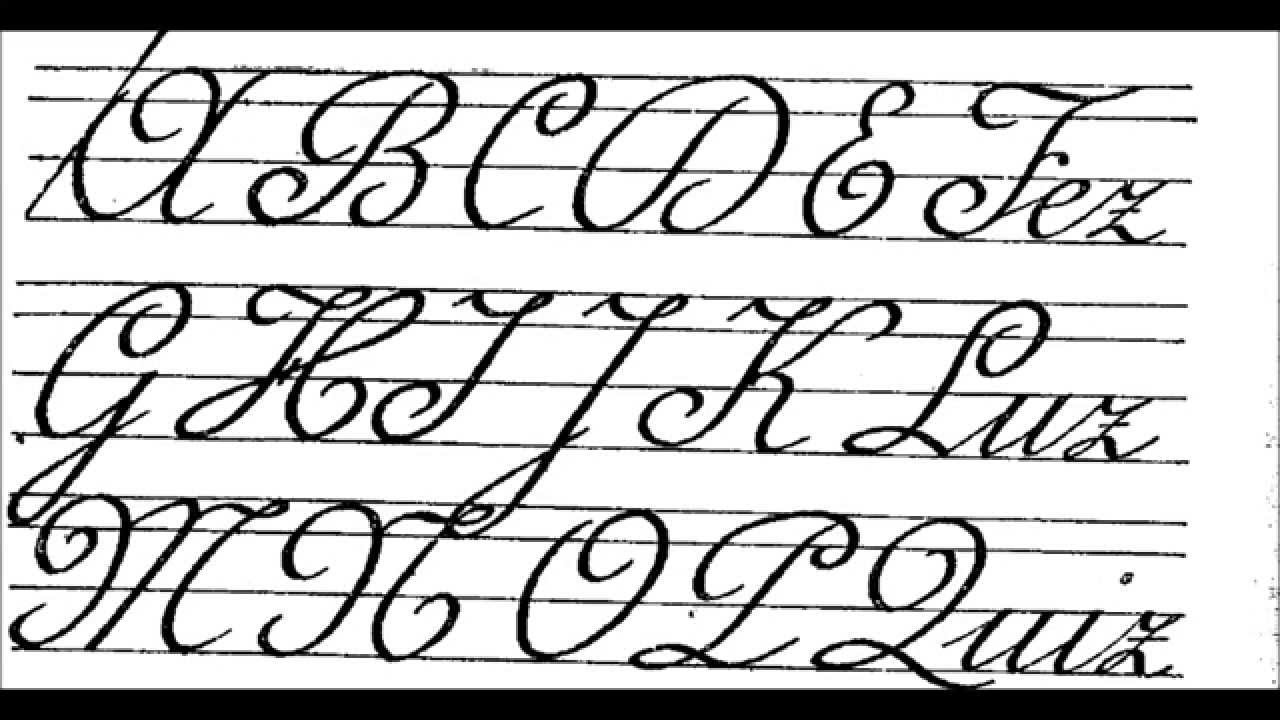 A B C D E Fez
G H I J K Luz
M N O P Quiz